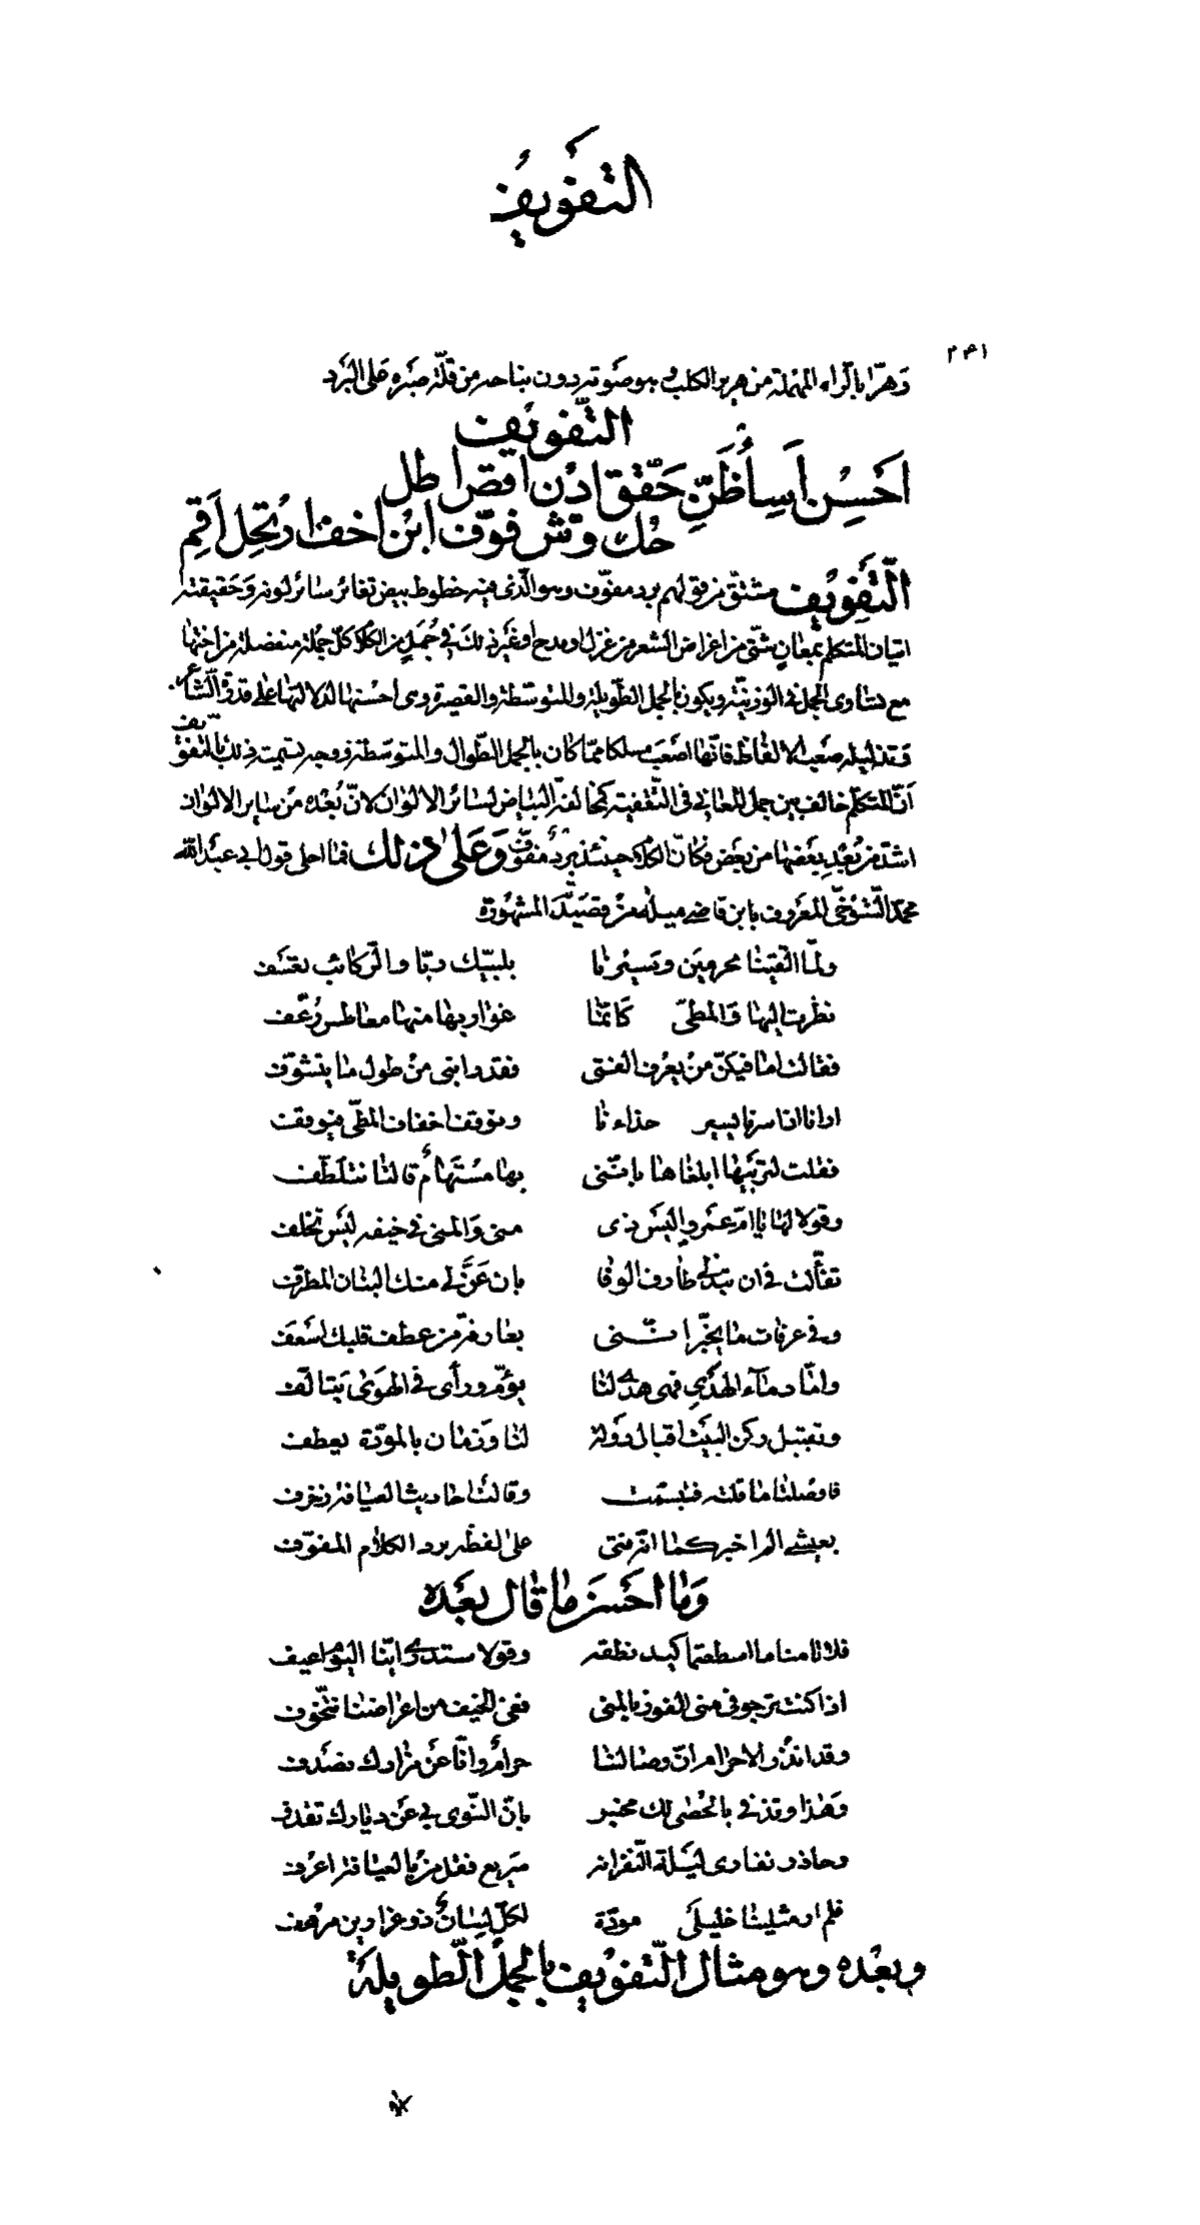 التفويف
٢٣١
وهرّا بالراء المهملة من هرير الكلب وهو صوته دون نباحه من قلّة صبره على البرد
التّفويف
احسن اسأ ظنّ حقّق ادن اقص اطل
حك وشّ فوّف ابن اخف ارتحل اقم
التّفويف مشتقّ من قولهم برد مفوّف وهو الّذى فيه خطوط بيض تغائر سائر لونه وحقيقته
اتيان المتكلم بمعان شتّى من اغراض الشعر من غزل او مدح او غير ذلك فى جمل من الكلام كلّ جملة منفصلة من اختها
مع تساوى الجمل فى الوزنيّة ويكون بالجمل الطّويلة والمتوسّطة والقصيرة وهى احسنها لدلالتها على قدرة الشّاعر
وتذليله صعب الالفاظ فانّها اصعب مسلكا ممّا كان بالجمل الطّوال والمتوسّطة ووجه تسميته ذلك بالتّفويف
انّ المتكلّم خالف بين جمل المعانى فى التّقفية كمخالفة البياض لسائر الالوان لانّ بعده من سائر الالوان
اشدّ من بعد بعضها من بعض فكانّ الكلام حينئذ برد مفوّف وعلى ذلك فما احلى قول ابى عبد الله
محمد التّنوخىّ المعروف بابن قاضى ميله من قصيدته المشهورة
ولمّا التقينا محرمين وسيرنا بلبيّك ربّا والركائب تعسف
نظرت اليها والمطىّ كانّما غواربها منها معاطس رعّف
فقالت اما فيكنّ من يعرف الفتى فقد رابنى من طول ما يتشوّف
اراه اذا سرنا يسير حذاءنا ونوقف اخفاف المطىّ فيوقف
فقلت لتربيها ابلغاها باننى بها مستهام قالتا نتلطّف
وقولا لها يا امّ عمرو اليس ذى منى والمنى فى خيفه ليس تخلف
تفألت فى ان تبذلى طارف الوفا بان عنّ لى منك البنان المطرّف
وفى عرفات ما يخبّر انّنى بعارفة من عطف قلبك اسعف
وامّا دماء الهدى فهى هدى لنا يؤمّ ورأى فى الهوى يتالّف
وتقبيل ركن البيت اقبال دولة لنا وزمان بالمودّة يعطف
فاوصلتا ما قلته فتبسّمت وقالت احاديث العيافة زخرف
بعيشى الم اخبركما انّه فتى على لفظه برد الكلام المفوّف
وما احسن ما قال بعده
فلا تامنا ما اسطعتما كيد نطقه وقولا ستدرى ايّنا اليوم اعيف
اذا كنت ترجو فى منى الفوز بالمنى ففى الخيف من اعراضنا تتخوّف
وقد انذر الاحرام انّ وصالنا حرام وانّا عن مزارك نصدف
وهذا وقذفى بالحصى لك مخبر بانّ النّوى بى عن ديارك تقذف
وحاذر نفارى ليلة النّفر انه سريع فقل من بالعيافة اعرف
فلم ار مثلينا خليلى مودّة لكلّ لسان ذو غرارين مرهف
وبعده وهو مثال التّفويف بالجمل الطّويلة